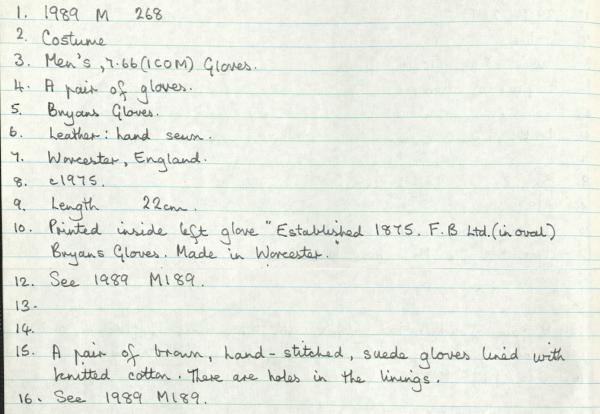 1. 1989 M 268
2. Costume
3. Men's, 7.66 (ICOM) Gloves.
4. A pair of gloves.
5. Bryans Gloves.
6. Leather: hand sewn.
7. Worcester, England.
8. c1975.
9. Length 22cm.
10. Printed inside left glove "Established 1875. F.B Ltd. (in oval)
Bryans Gloves. Made in Worcester."
12. See 1989 M189.
13.
14.
15. A pair of brown, hand-stitched, suede gloves lined with
knitted cotton. There are holes in the linings.
16. See 1989 M189.